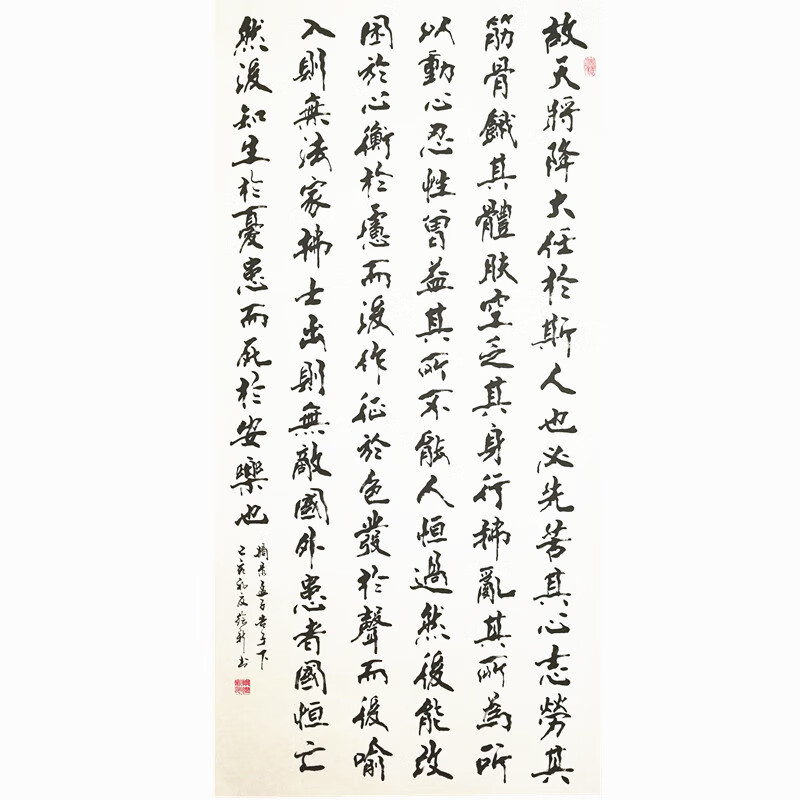 故天將降大任於斯人也必先苦其心志勞其
筋骨餓其體膚空乏其身行拂亂其所為所
以動心忍性曾益其所不能人恒過然後能改
困於心衡於慮而後作征於色發於聲而後喻
入則無法家拂士出則無敵國外患者國恒亡
然後知生於憂患而死於安樂也
摘录孟子告子下
己亥 書